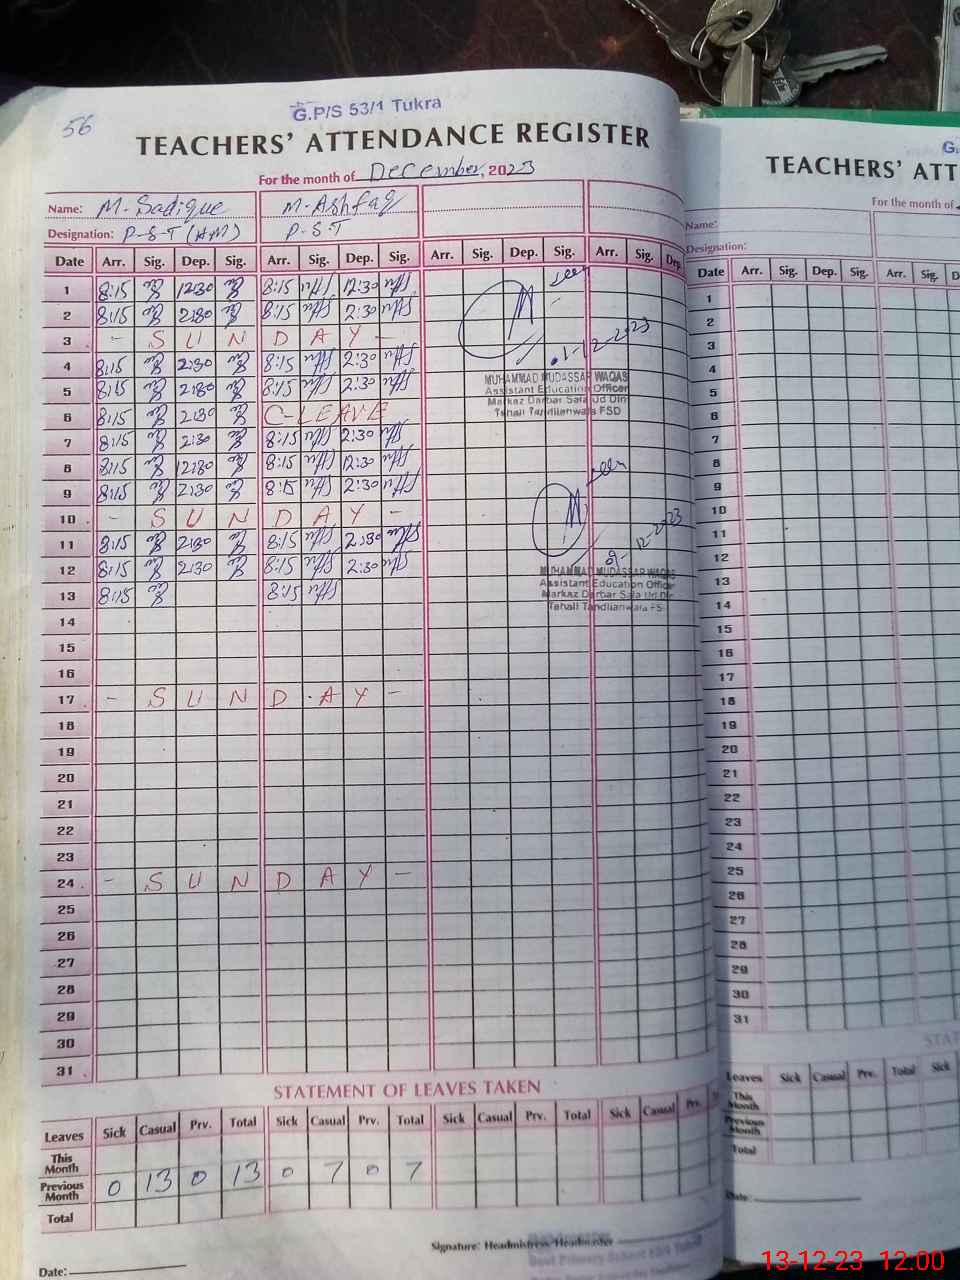 56
G.P/S 53/1 Tukra
TEACHERS' ATTENDANCE REGISTER
For the month of December, 2023
Name: M. Sadique M. Ashfaq
Designation: P-S-T (HM) P-S-T
Date Arr. Sig. Dep. Sig. Arr. Sig. Dep. Sig. Arr. Sig. Dep. Sig. Arr. Sig. Dep.
1 8:15 12:30 8:15 12:30 seen
2 8:15 2:30 8:15 2:30
3 - S U N D A Y -
4 8:15 2:30 8:15 2:30 1-12-2023
5 8:15 2:30 8:15 2:30
MUHAMMAD MUDASSAR WAQAS
Assistant Education Officer
Markaz Darbar Sala Ud Din
Tehsil Tandlianwala FSD
6 8:15 2:30 C-LEAVE
7 8:15 2:30 8:15 2:30
8 8:15 12:30 8:15 12:30 seen
9 8:15 2:30 8:15 2:30
10 - S U N D A Y -
11 8:15 2:30 8:15 2:30
12 8:15 2:30 8:15 2:30 -12-2023
MUHAMMAD MUDASSAR WAQAS
Assistant Education Officer
Markaz Darbar Sala Ud Din
Tehsil Tandlianwala FS
13 8:15 8:15
14
15
16
17 - S U N D A Y -
18
19
20
21
22
23
24 - S U N D A Y -
25
26
27
28
29
30
31
STATEMENT OF LEAVES TAKEN
Leaves Sick Casual Prv. Total Sick Casual Prv. Total Sick Casual Prv. Total Sick Casual Prv.
This Month
Previous Month 0 13 0 13 0 7 0 7
Total
Signature: Headmistress/Headmaster
Date:
G.
TEACHERS' ATT
For the month of
Name:
Designation:
Date Arr. Sig. Dep. Sig. Arr. Sig. D
1
2
3
4
5
6
7
8
9
10
11
12
13
14
15
16
17
18
19
20
21
22
23
24
25
26
27
28
29
30
31
STAT
Leaves Sick Casual Prv. Total Sick
This Month
Previous Month
Total
Date:
13-12-23 12:00